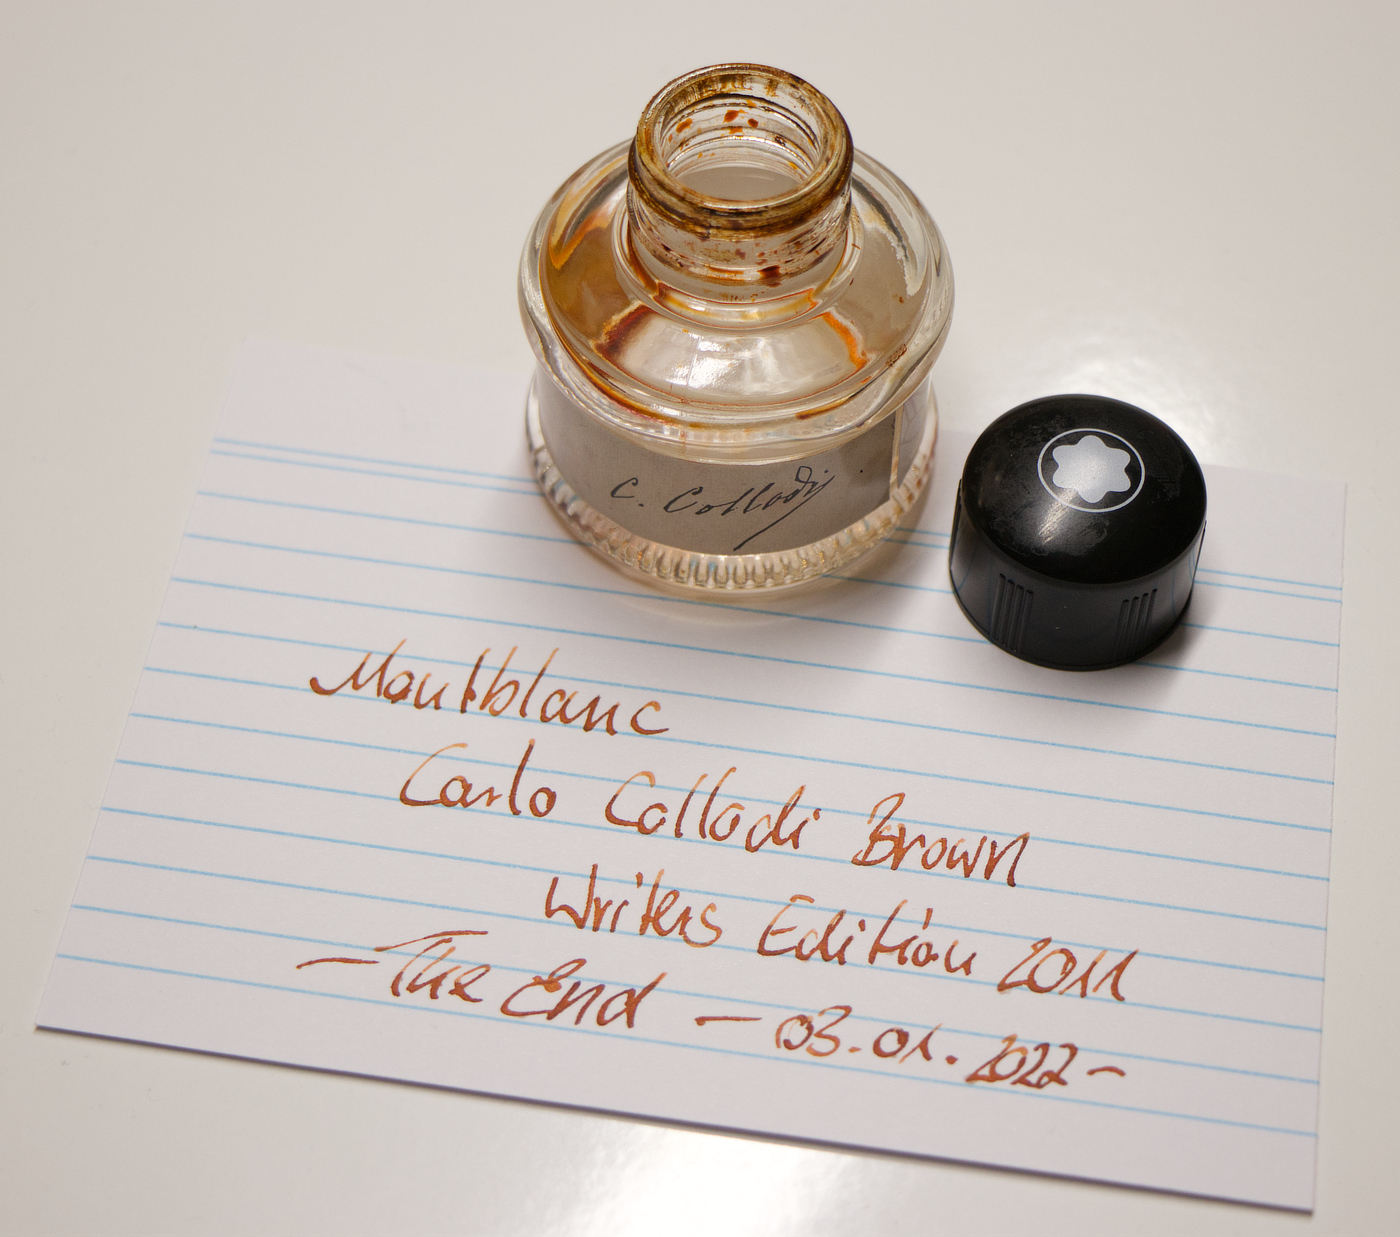 C. Collodi
Montblanc
Carlo Collodi Brown
Writers Edition 2011
— The End — 03.01.2022 –